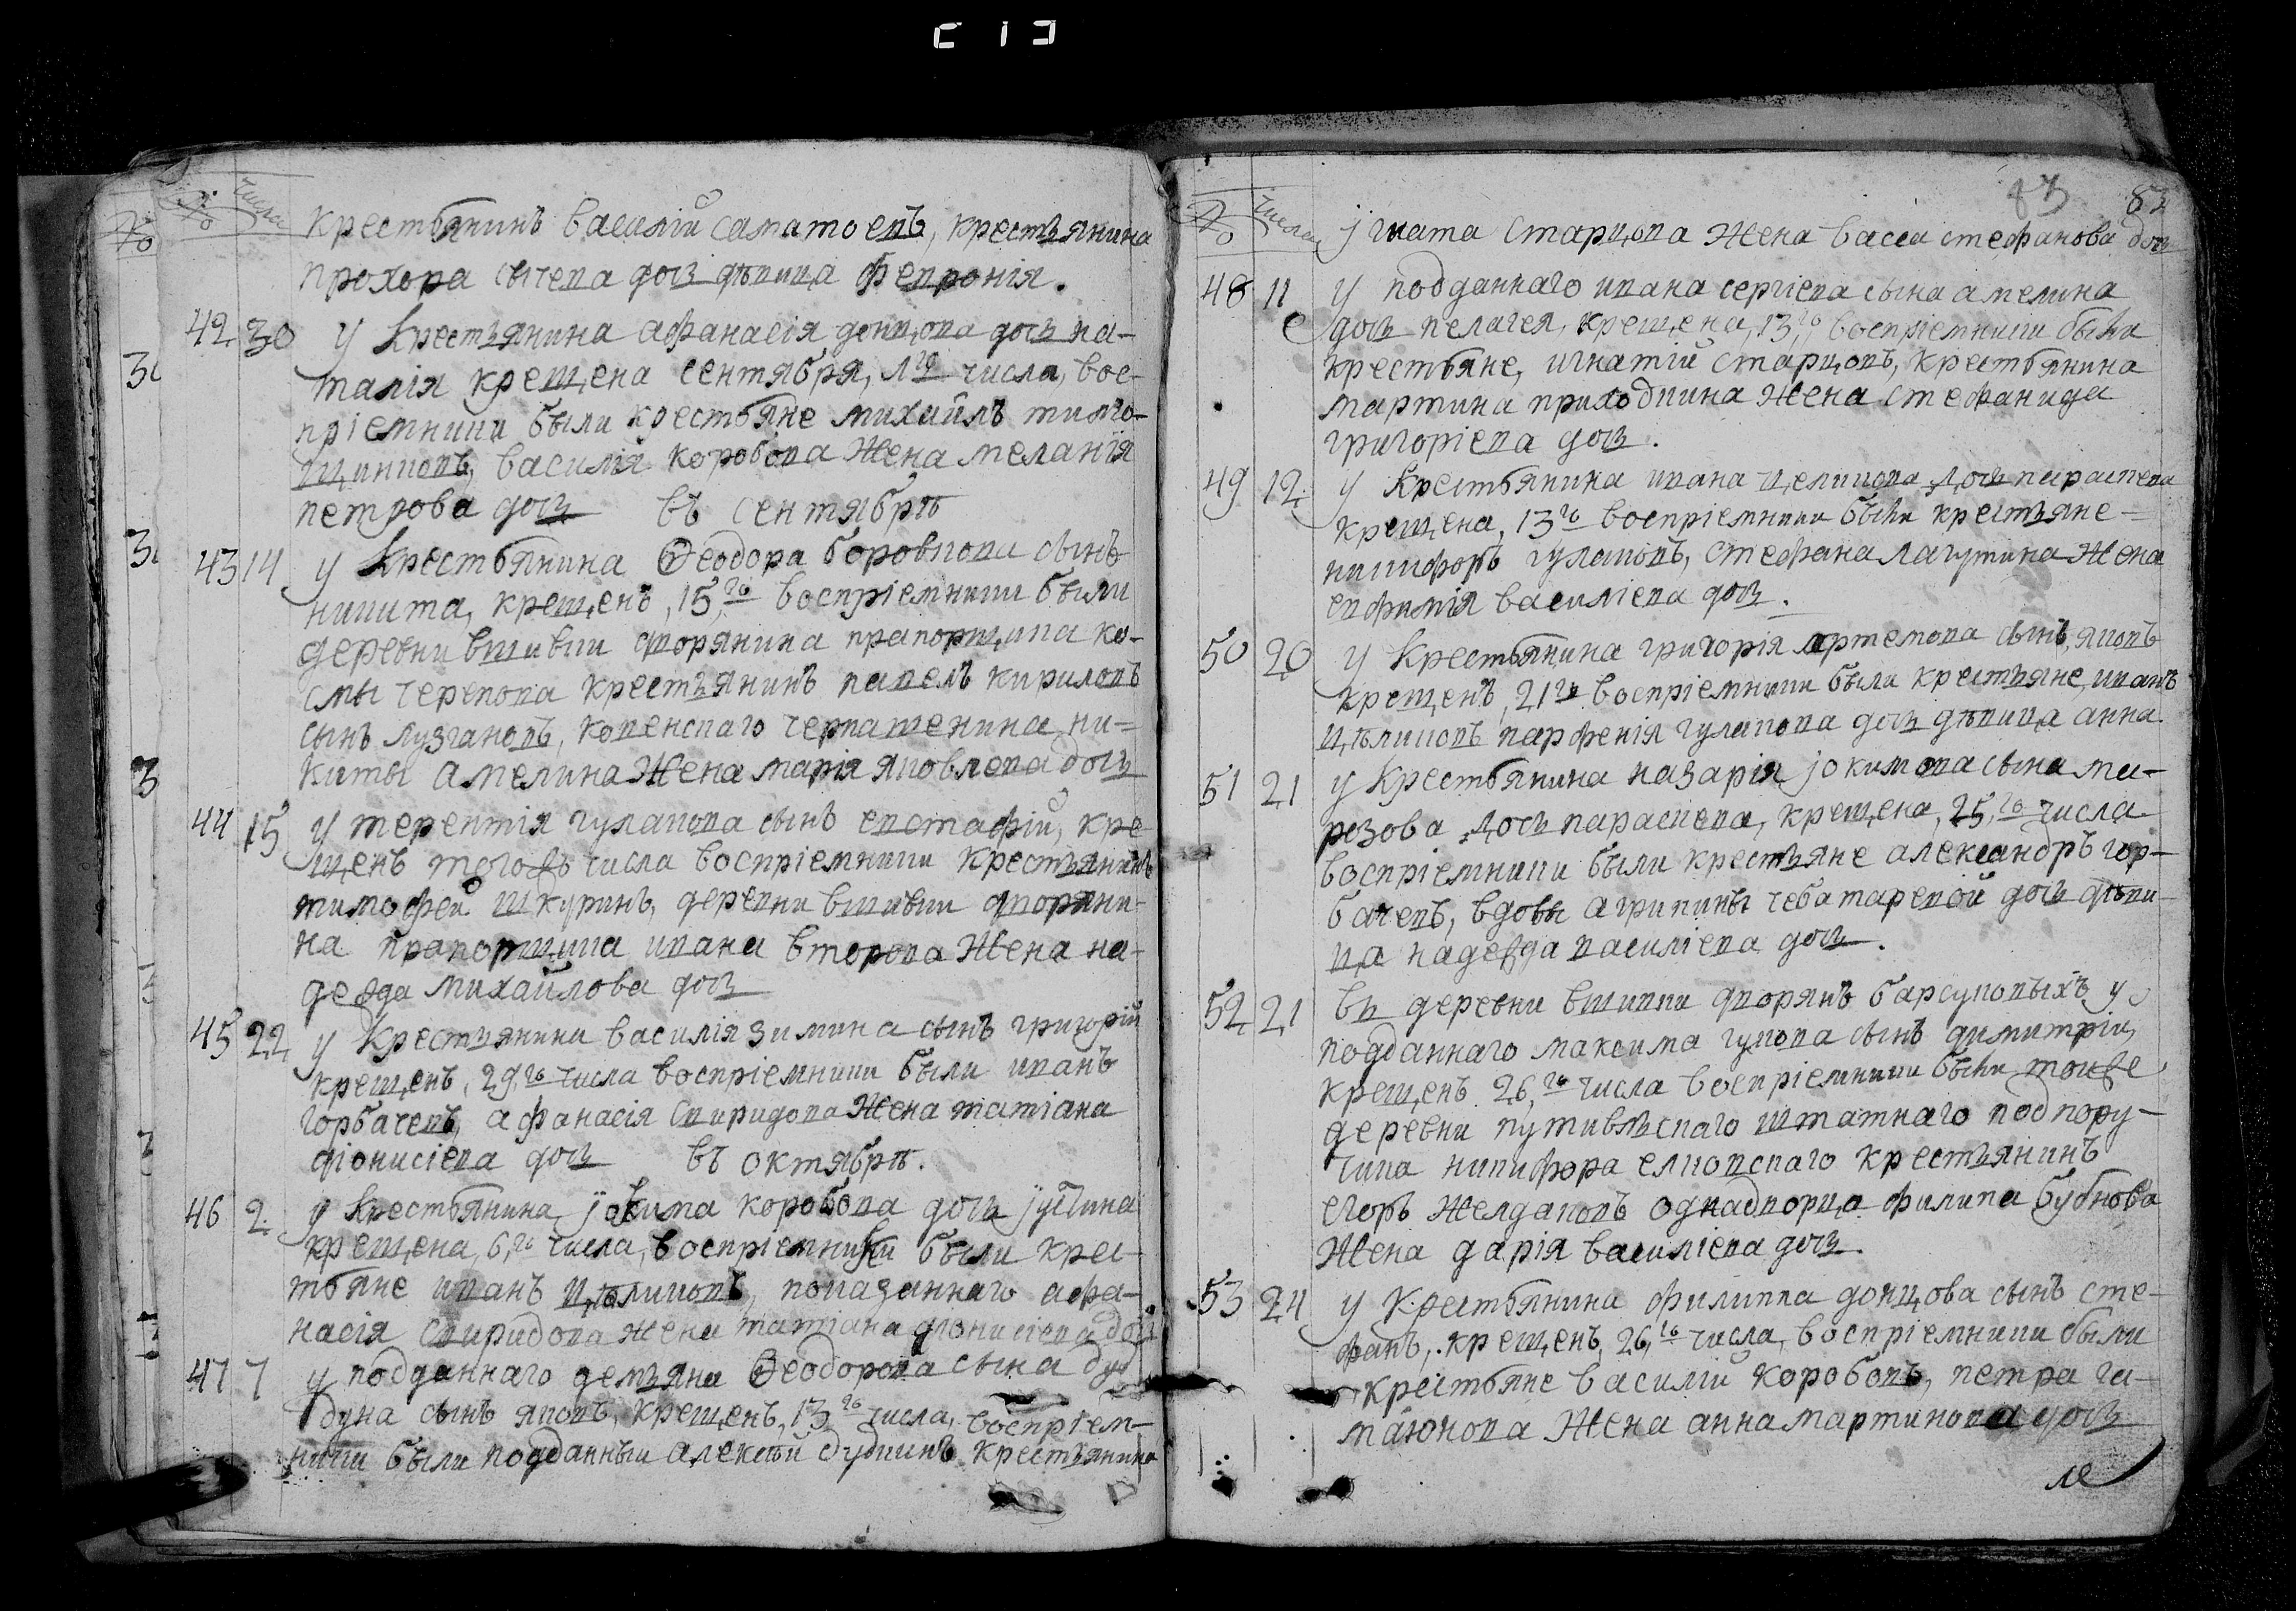 № № числа
крестьянинъ василій саматоевъ, крестьянина
прохора сычева дочь дѣвица февронія.
42 30 у крестьянина афанасія донцова дочь на-
талія крещена сентября, 1го числа, вос-
пріемники были крестьяне михаилъ
василія коробова жена меланія
петрова дочь въ сентябрѣ
43 14 у крестьянина Ѳеодора боровкова сынъ
никита, крещенъ, 15,го воспріемники были
деревни вшивки дворянина прапорщика ко-
смы черепова крестьянинъ павелъ кириловъ
сынъ лузгановъ, коренскаго черкашенина ни-
киты амелина жена марія яковлева дочь
44 15 у терентія гулакова сынъ евстафій, кре-
щенъ тогожъ числа воспріемники крестьянинъ
тимофей шкуринъ, деревни вшивки дворяни-
на прапорщика ивана второва жена на-
дежда михайлова дочь
45 22 у крестьянина василія зимина сынъ григорій
крещенъ, 29,го числа воспріемники были иванъ
горбачевъ, афанасія спиридова жена татіана
діонисіева дочь въ октябрѣ.
46 2 у крестьянина, іокима коробова дочь іустина
крещена, 6,го числа, воспріемники были крес-
тьяне иванъ цѣликовъ, показаннаго афа-
насія спиридова жена татіана діонисіева дочь
47 7 у подданнаго демьяна Ѳеодорова сына дуд
дука сынъ яковъ, крещенъ, 13го числа, воспріем-
ники были подданный алексѣй дудкинъ крестьянина
83 82
№ числа
ігната старцова жена васса стефанова дочь
48 11 у подданнаго ивана сергіева сына амелина
дочь пелагея, крещена, 13,го воспріемники были
крестьяне, игнатій старцовъ, крестьянина
мартина приходкина жена стефанида
григоріева дочь.
49 12 у крестьянина ивана целикова дочь параскева
крещена, 13го воспріемники были крестьяне
никифоръ гулаковъ, стефана лагутина жена
евфимія василіева дочь.
50 20 у крестьянина григорія артемова сынъ, яковъ
крещенъ, 21го воспріемники были крестьяне, иванъ
цѣликовъ парфенія гулакова дочь дѣвица анна.
51 21 у крестьянина назарія іокимова сына ма-
розова дочь параскева, крещена, 25,го числа
воспріемники были крестьяне александръ гор-
бачевъ, вдовы агрипины чеботаревой дочь дѣви-
ца надежда василіева дочь.
52 21 въ деревни вшивки дворянъ барсуковыхъ у
подданнаго максима гукова сынъ димитрій,
крещенъ 26,го числа воспріемники были тоиже
деревни путивлскаго штатнаго подпору-
чика никифора елковскаго крестьянинъ
егоръ желдаковъ однадворца филипа бубнова
жена дарія василіева дочь.
53 24 у крестьянина филиппа донцова сынъ сте-
фанъ, крещенъ, 26,го числа, воспріемники были
крестьяне василій коробовъ, петра га-
маюнова жена анна мартинова дочь